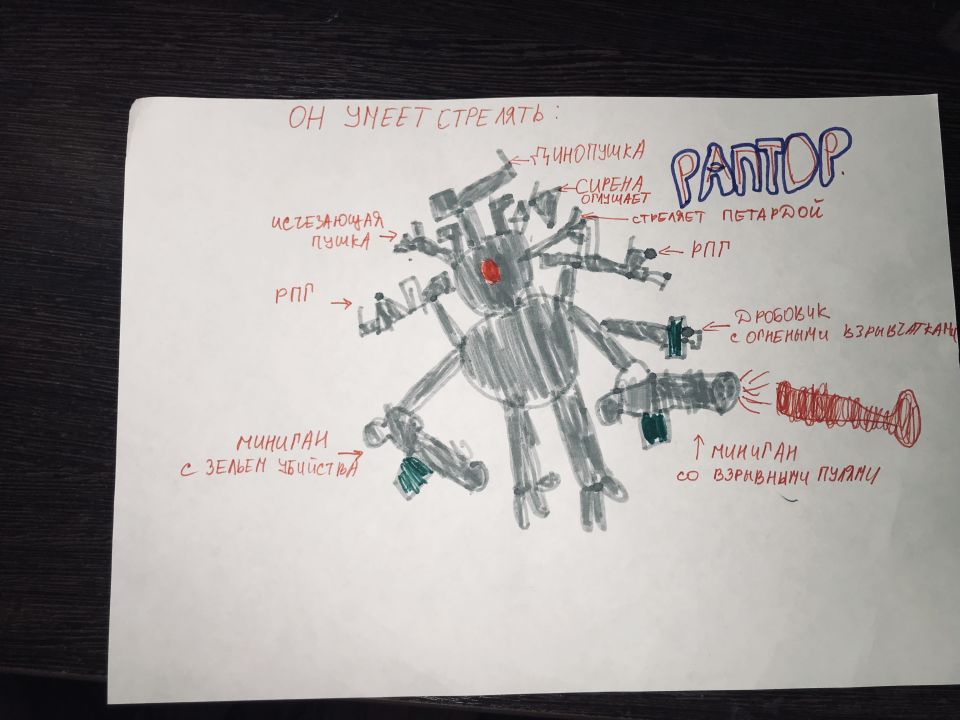 ОН УМЕЕТ СТРЕЛЯТЬ:
РАПТОР.
ДИНОПУШКА
СИРЕНА
ОГЛУШАЕТ
СТРЕЛЯЕТ ПЕТАРДОЙ
ИСЧЕЗАЮЩАЯ
ПУШКА
РПГ
РПГ
ДРОБОВИК
С ОГНЕНЫМИ ВЗРЫВЧАТКАМИ
МИНИГАН
С ЗЕЛЬЕМ УБИЙСТВА
МИНИГАН
СО ВЗРЫВНЫМИ ПУЛЯМИ